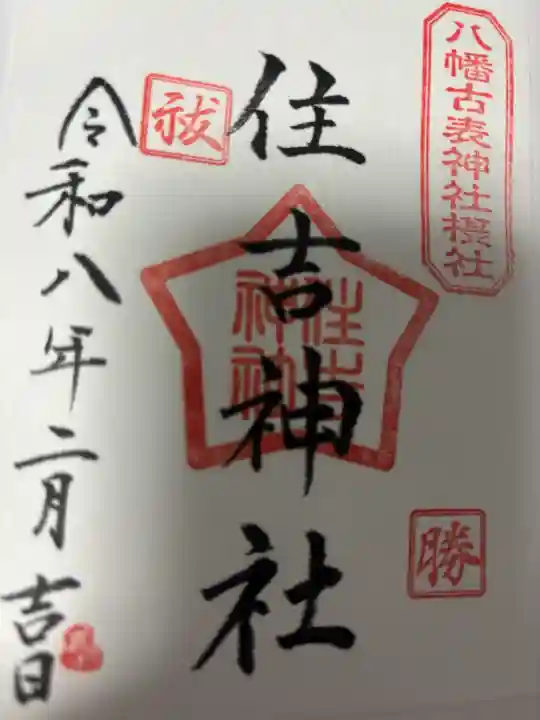 八幡古表神社摂社
住吉神社
住吉
神社
祓
勝
令和八年二月吉日